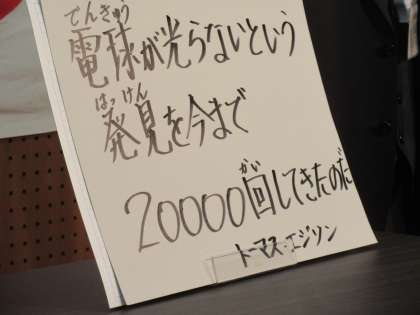 でんきゅう
電球が光らないという
はっけん
発見を今まで
がい
20000回してきたのだ
トーマス・エジソン